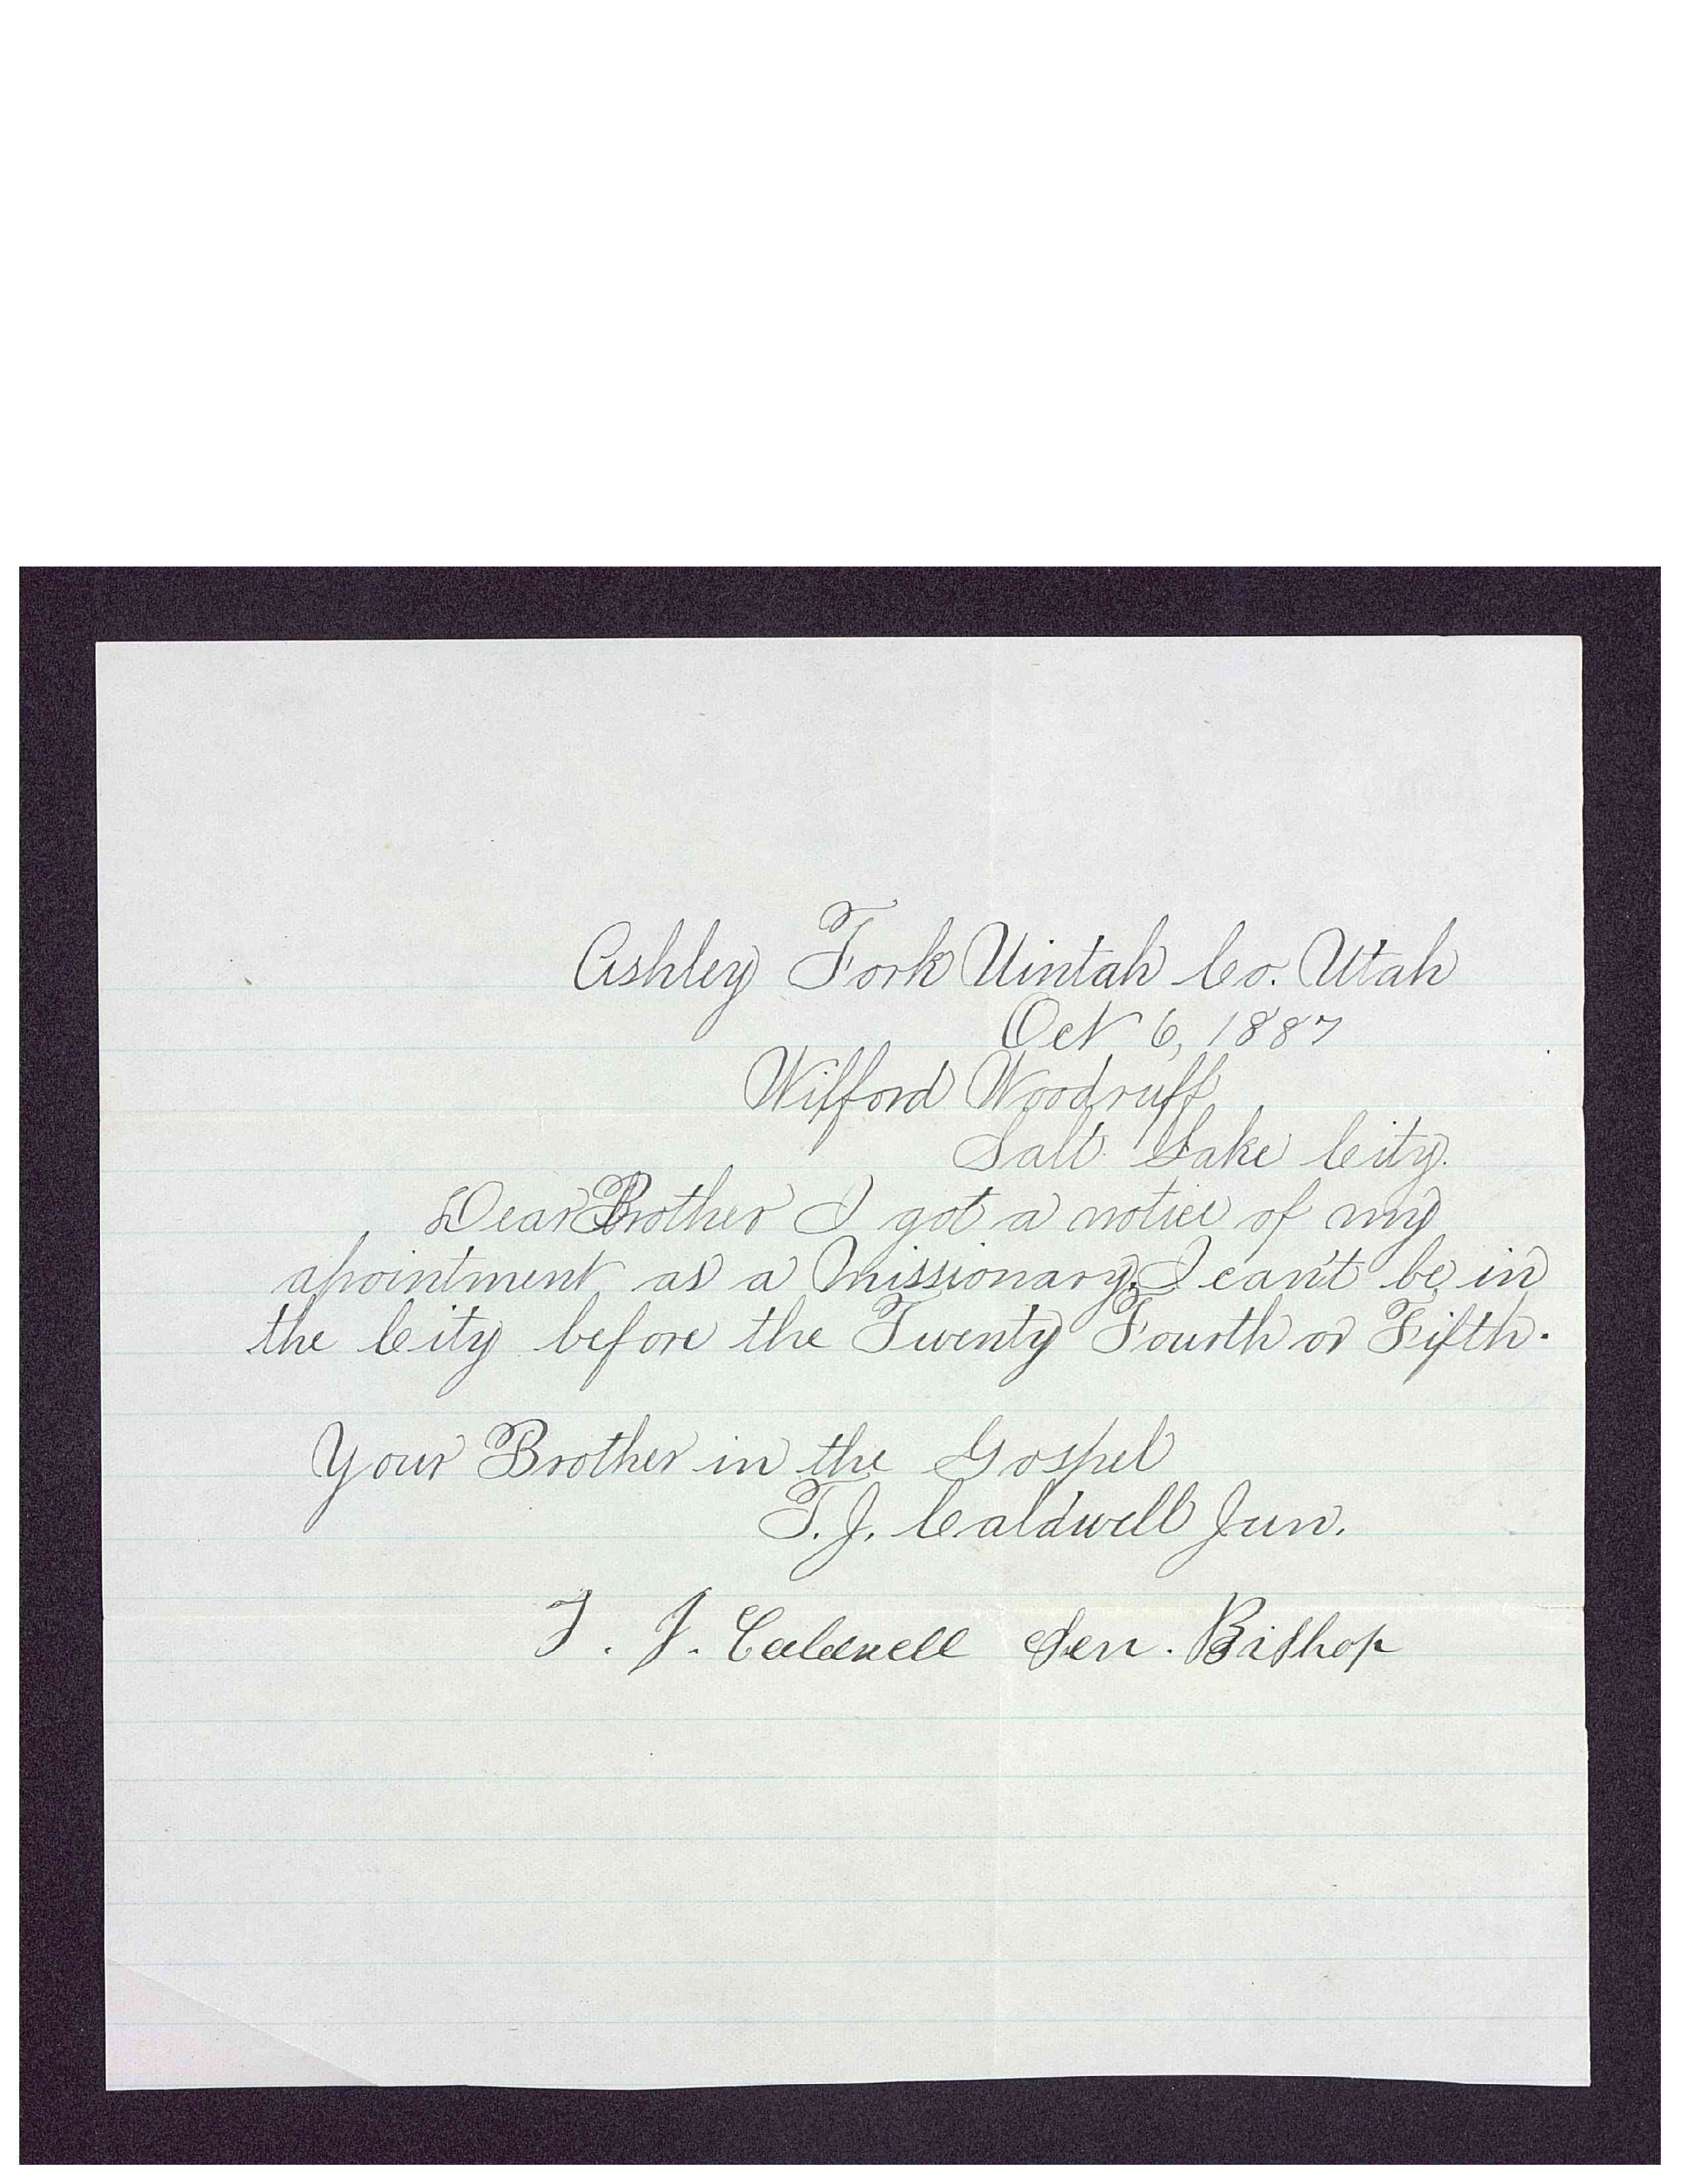 Ashley Fork Uintah Co. Utah
Oct 6, 1887
Wilford Woodruff
Salt Lake City.
Dear Brother I got a notice of my
apointment as a Missionary. I can't be in
the City before the Twenty Fourth or Fifth.
Your Brother in the Gospel
T.J. Caldwell Jun.
T. J. Caldwell Sen. Bishop